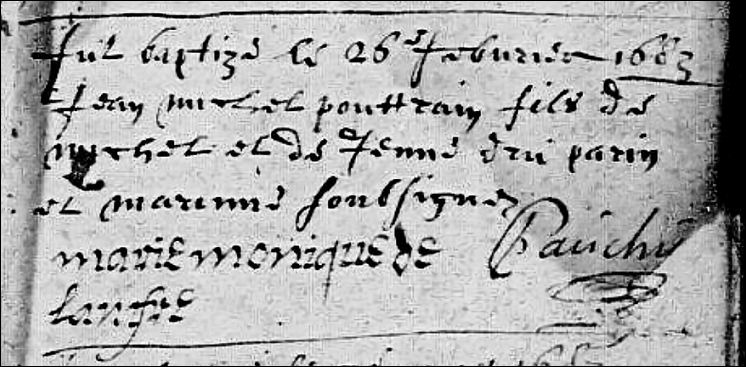 fut baptizé le 26e feburier 1683
Jean michel pouttrain fils de
michel et de Jenne dru parin
et marinne soubsignez
marie monique de Pauchy
lanfre